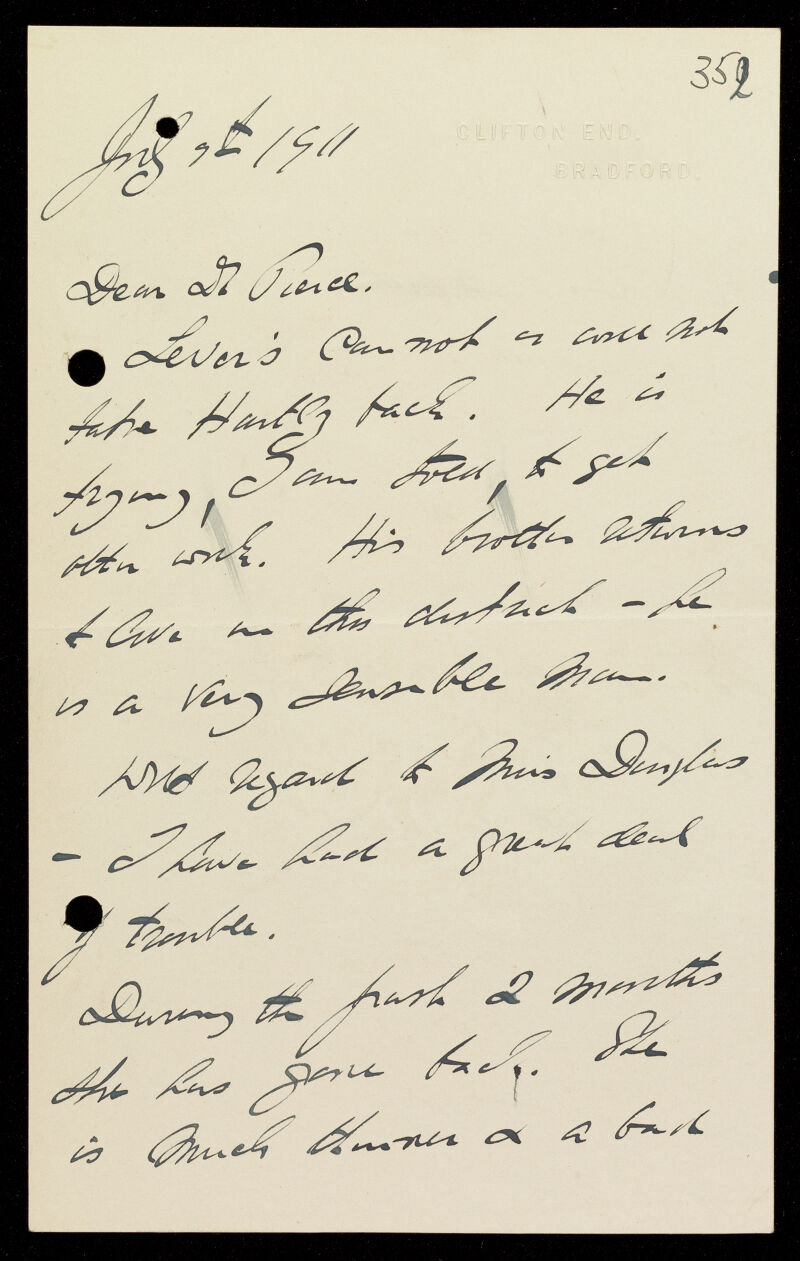 352
CLIFTON END.
BRADFORD.
July 9th 1911
Dear Dr Pierce.
Lever's Cannot or will not
take Hartly back. He is
trying, I am told, to get
other work. His brother returns
to live in this district - he
is a very sensible man.
With regard to Miss Douglas
- I have had a great deal
of trouble.
During the past 2 months
she has gone back. She
is much thinner & a bad